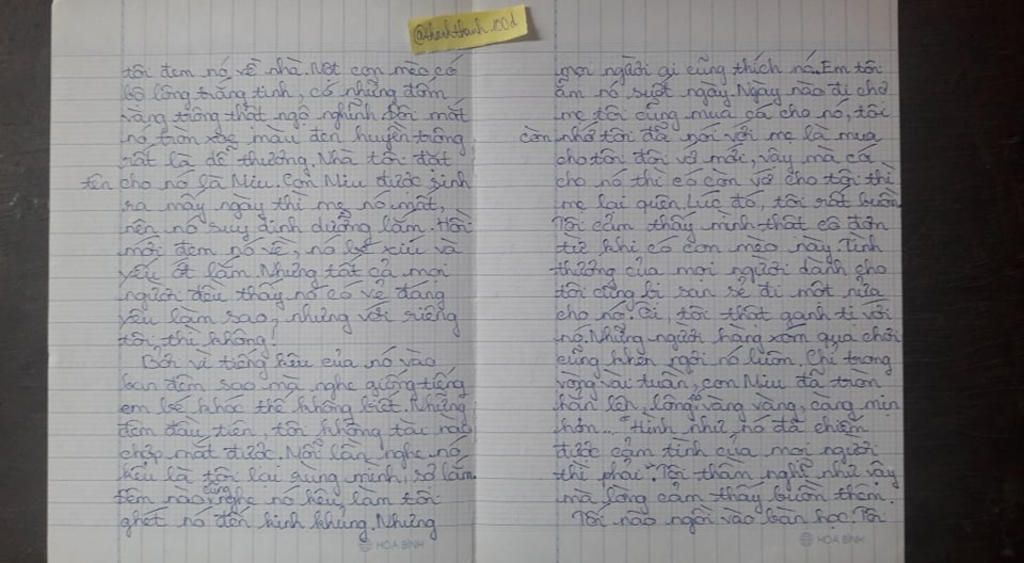 @thanhthanh.100d
tôi đem nó về nhà. Một con mèo có
bộ lông trắng tinh, có những đốm
vàng trông thật ngộ nghĩnh. Đôi mắt
nó tròn xoe màu đen huyền trông
rất là dễ thương. Nhà tôi đặt
tên cho nó là Miu. Con Miu được sinh
ra mấy ngày thì mẹ nó mất,
nên nó suy dinh dưỡng lắm. Hồi
mới đem nó về, nó bé xíu và
yếu ớt lắm. Nhưng tất cả mọi
người đều thấy nó có vẻ đáng
yêu làm sao, nhưng với riêng
tôi thì không!
Bởi vì tiếng kêu của nó vào
ban đêm sao mà nghe giống tiếng
em bé khóc thế không biết. Những
đêm đầu tiên, tôi không tài nào
chợp mắt được. Mỗi lần nghe nó
kêu là tôi lại rùng mình, sợ lắm.
Đêm nào cũng nghe nó kêu, làm tôi
ghét nó đến kinh khủng. Nhưng
HÒA BÌNH
mọi người ai cũng thích nó. Em tôi
ẵm nó suốt ngày. Ngày nào đi chợ
mẹ tôi cũng mua cá cho nó, tôi
còn nhớ tôi đã nói với mẹ là mua
cho tôi đôi vớ mới, vậy mà cá
cho nó thì có còn vớ cho tôi thì
mẹ lại quên. Lúc đó, tôi rất buồn.
Tôi cảm thấy mình thật cô đơn
từ khi có con mèo này. Tình
thương của mọi người dành cho
tôi cũng bị san sẻ đi một nửa
cho nó. Ôi, tôi thật ganh tị với
nó. Những người hàng xóm qua chơi
cũng khen ngợi nó luôn. Chỉ trong
vòng vài tuần, con Miu đã tròn
hẳn lên, lông vàng vàng, càng mịn
hơn... "Hình như nó đã chiếm
được cảm tình của mọi người
thì phải". Tôi thầm nghĩ như vậy
mà lòng cảm thấy buồn thêm.
Tối nào ngồi vào bàn học. Tôi
HÒA BÌNH